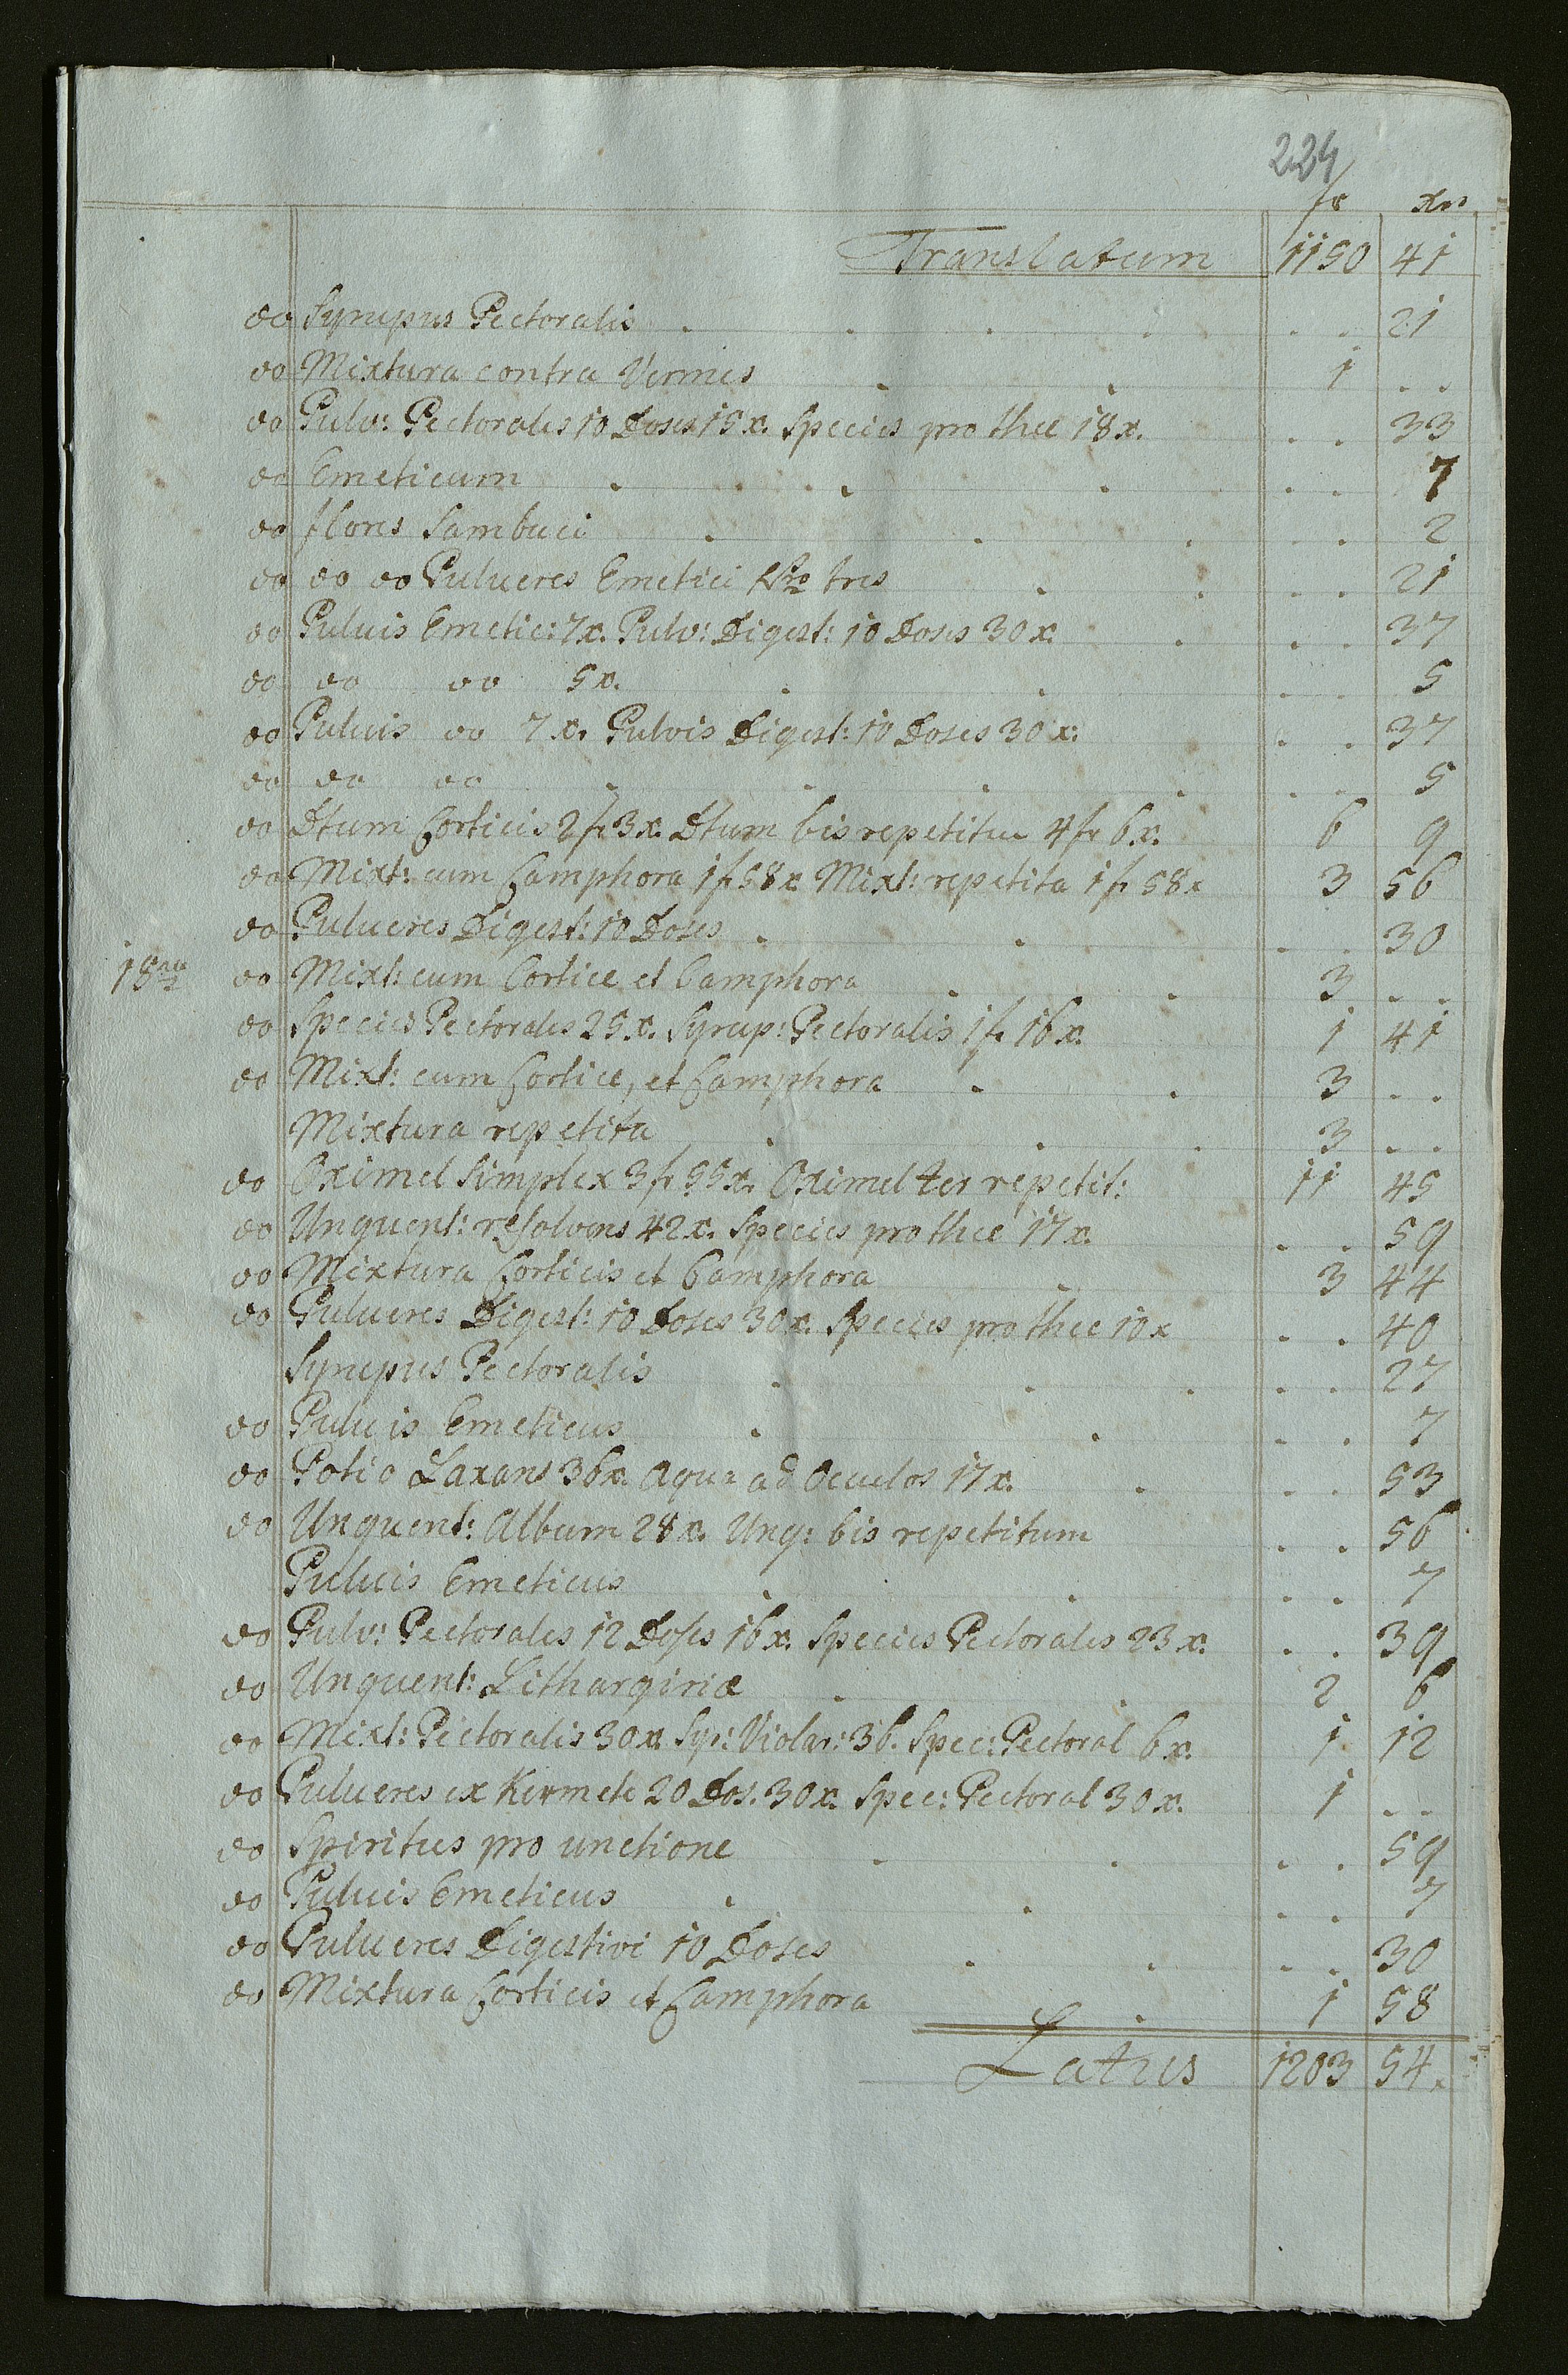 224
fr xr
Translatum 1150 41
do Syrupus Pectoralis . . . . . . 21
do Mixtura contra Vermes . . 1 . .
do Pulv: Pectorales 10 Doses 15x. Species pro thee 18x. . . 33
do Emeticum . . . . . . . 7
do flores Sambuci . . . . . 2
do do do Pulueres Emetici Nro tres . . . . 21
do Puluis Emetic: 7x. Pulv: Digest: 10 Doses 30x. . . . 37
do do do 5x. . . . . 5
do Puluis do 7x. Pulvis Digest: 10 Doses 30x: . . 37
do do do . . . . . . 5
do Dtum Corticis 2fr 3x. Dtum bis repetitum 4fr 6x. 6 9
do Mixt: cum Camphora 1fr 58x Mixt: repetita 1fr 58x 3 56
do Pulueres Digest: 10 Doses . . . . 30
18va do Mixt: cum Cortice et Camphora . . 3 . .
do Species Pectorales 25x. Syrup: Pectoralis 1fr 16x. 1 41
do Mixt: cum Cortice, et Camphora . . 3 . .
Mixtura repetita . . . 3 . .
do Oximel Simplex 3fr 55x. Oximel ter repetit: 11 45
do Unguent: resolvens 42x. Species pro thee 17x. . . 59
do Mixtura Corticis et Camphora . 3 44
do Pulueres Digest: 10 Doses 30x. Species pro thee 10x . . 40
Syrupus Pectoralis . . . . . 27
do Puluis Emeticus . . . . 7
do Potio Laxans 36x. Aqua ad Oculos 17x. . . . 53
do Unguent: Album 28x. Ung: bis repetitum . . 56
Puluis Emeticus . . . . 7
do Pulv: Pectorales 12 Doses 16x. Species Pectorales 23x. . . 39
do Unguent: Lithargiriæ . 2 6
do Mixt: Pectoralis 30x. Syr: Violar: 36. Spec: Pectoral 6x. 1 12
do Pulueres ex Kermete 20 Dos. 30x. Spec: Pectoral 30x. 1 . .
do Spiritus pro unctione . . . . 59
do Puluis Emeticus . . . . 7
do Pulueres Digestivi 10 Doses . . . . 30
do Mixtura Corticis et Camphora . 1 58
Latus 1203 54x